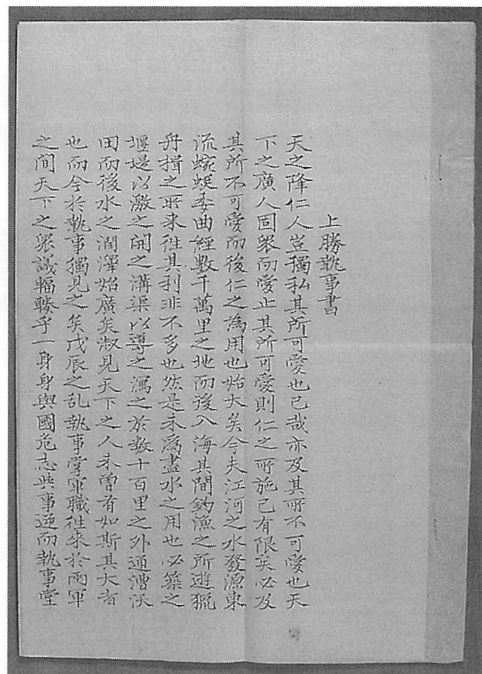 上勝執事書
天之降仁人豈獨私其所可愛也已哉亦及其所不可愛也天
下之廣人固衆而愛止其所可愛則仁之所施已有限矣必及
其所不可愛而後仁之為用也始大矣今夫江河之水發源東
流蜿蜒委曲經數千萬里之地而後入海其間釣漁之所遊獵
舟揖之所来往其利非不多也然是未為盡水之用也必築之
堰堤以激之開之溝渠以導之瀉之於数十百里之外通漕沃
田而後水之潤澤始廣矣淑見天下之人未曽有如斯其大者
也而今於執事獨見之矣戊辰之乱執事掌軍職往来於兩軍
之间天下之衆議輻輳乎一身身與國危志與事逆而執事堂